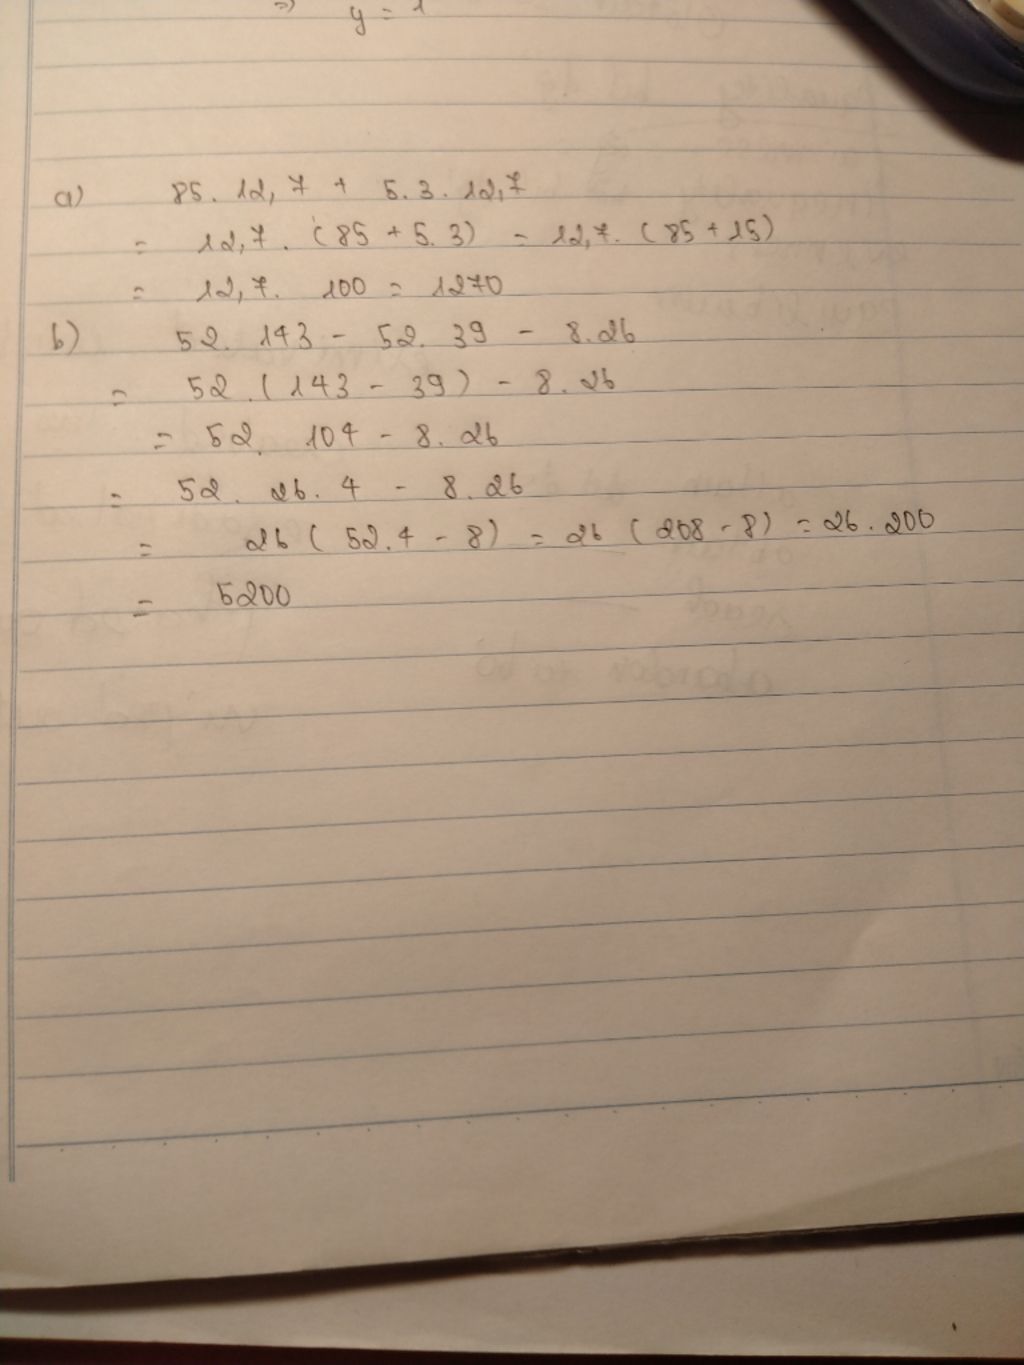 => y = 1
a) 85. 12,7 + 5.3. 12,7
= 12,7. (85 + 5.3) = 12,7. (85 + 15)
= 12,7. 100 = 1270
b) 52. 143 - 52. 39 - 8.26
= 52.(143 - 39) - 8.26
= 52. 104 - 8.26
= 52. 26. 4 - 8.26
= 26( 52.4 - 8) = 26 (208 - 8) = 26.200
= 5200